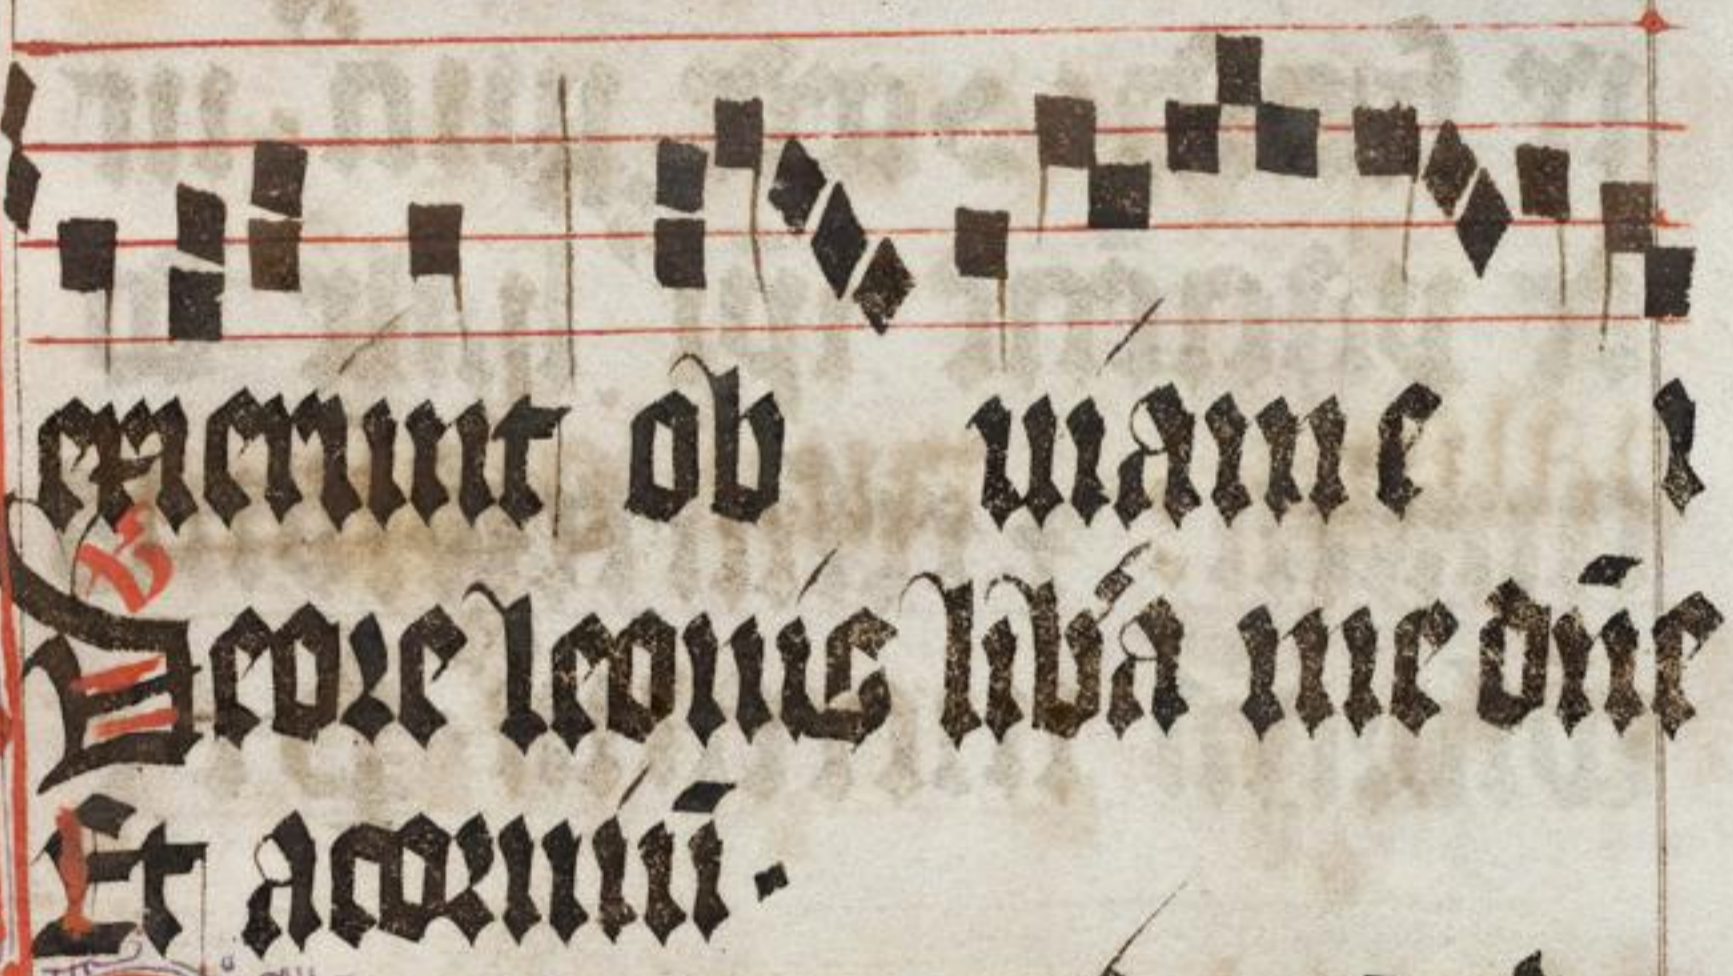 exierunt ob uiam e i
℣ De ore leonis lib'a me dñe
Et acorniū .